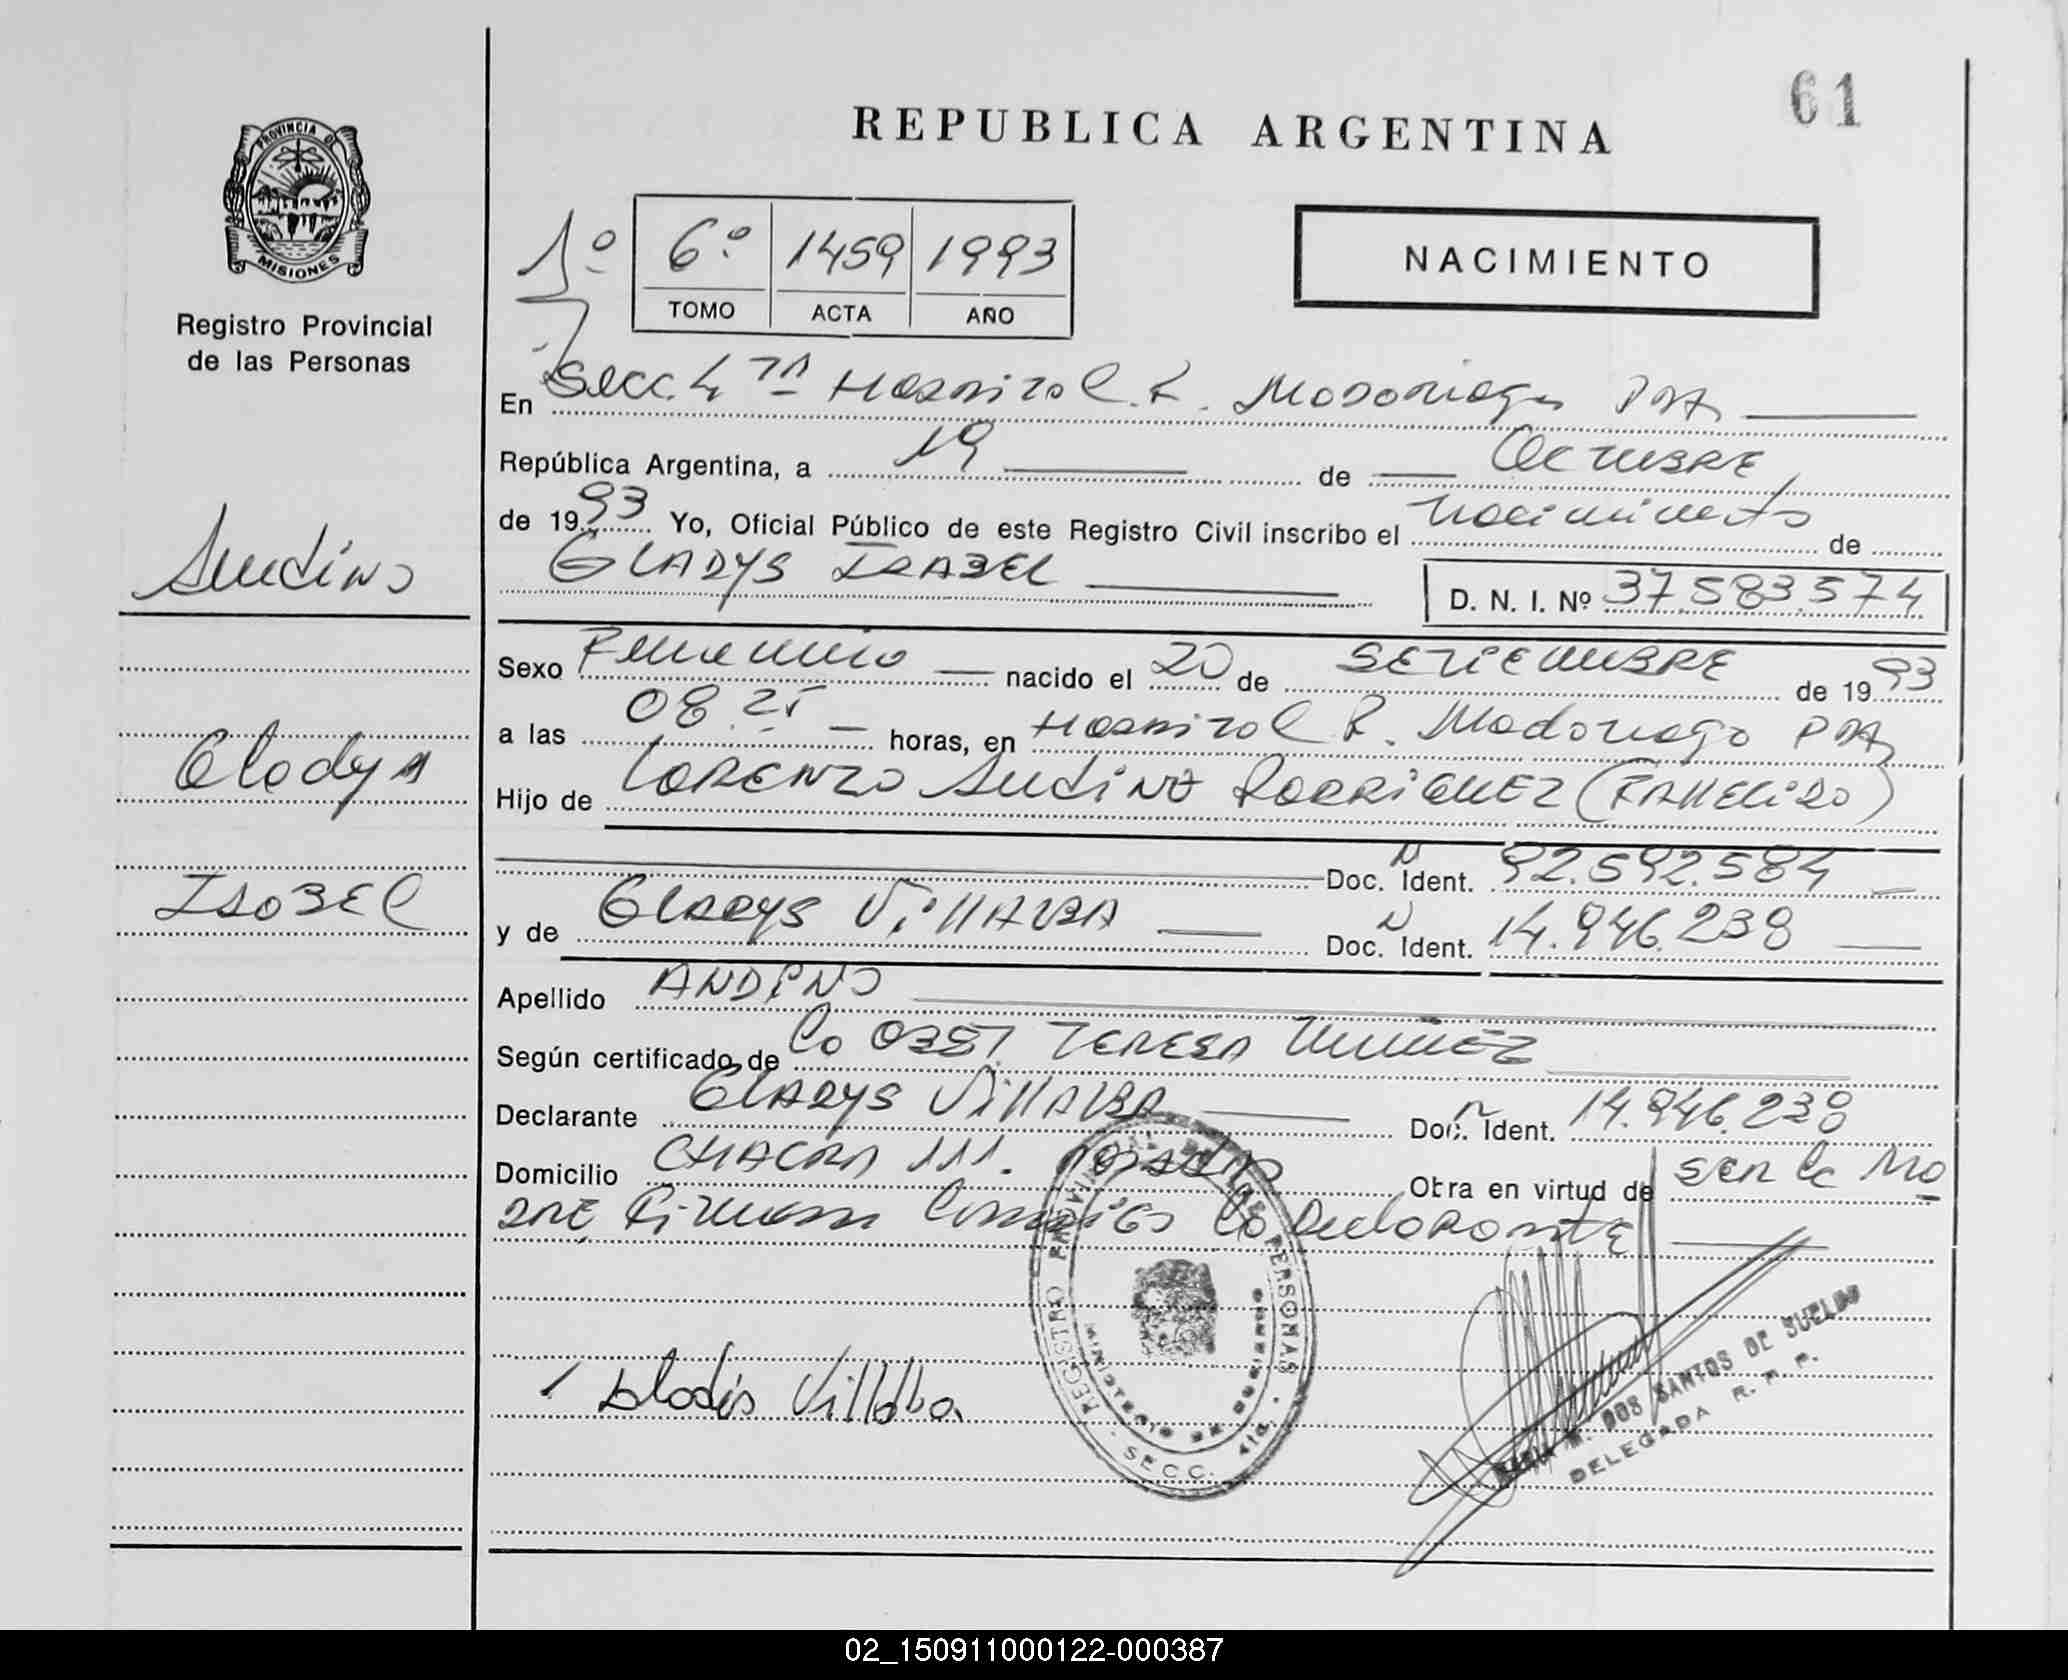 61
REPUBLICA ARGENTINA
PROVINCIA DE
MISIONES
Registro Provincial
de las Personas
1º 6º 1459 1993
TOMO ACTA AÑO
NACIMIENTO
En Secc. 4ª Hospital R. Madariaga Pdas
República Argentina, a 19 de Octubre
de 1993 Yo, Oficial Público de este Registro Civil inscribo el Nacimiento de
GLADYS ISABEL D. N. I. Nº 37.583.574
Andino
Sexo Femenino nacido el 20 de SETIEMBRE de 1993
a las 08.25 horas, en Hospital R. Madariaga Pdas
Gladys
Hijo de LORENZO Andino RODRIGUEZ (FALLECIDO)
Doc. Ident. 92.592.584
Isabel
y de GLADYS VillALBA Doc. Ident. 14.946.238
Apellido ANDINO
Según certificado de TERESA
Declarante GLADYS VillALBA Doc. Ident. 14.946.238
Domicilio CHACRA 111. Posadas Otra en virtud de ser la Ma
dre Firma Declarante
REGISTRO PROVINCIAL DE LAS PERSONAS
MINISTERIO DE GOBIERNO
SECC. 4ta.
Gladis Villalba
M. DOS SANTOS DE SUELDO
DELEGADA R. P. P.
02_150911000122-000387